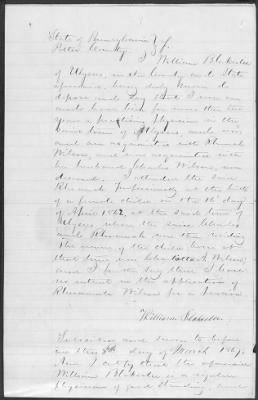 State of Pennsylvania } SS.
Potter County
I William Blakslee
of Ulysses, in the County and State
aforesaid, being duly sworn do
depose and say that I was and
have been for more than ten
years a practicing physician in the
said town of Ulysses, and was
and am acquainted with Rhumah
Wilson, and was acquainted with
her husband Charles Wilson now
deceased, I attended the said
Rhumah professionally at the birth
of a female child, on the day
of April 1862, at the said town of
Ulysses where the said Charles
and Rhumah were then residing
The name of the child born at
that time was Wilson,
and I further say that I have
no interest in the application of
Wilson for a Pension
William Blakslee
Subscribed and sworn to before
me this 8th day of March 186
And I certify that the aforesaid
William Blakslee is a regular
Physician of good Standing, and